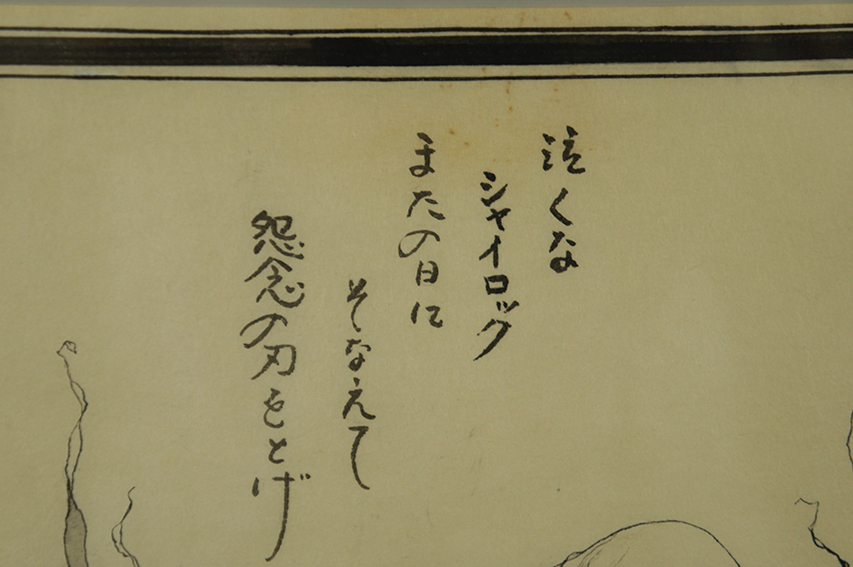 泣くな
シャイロック
またの日に
そなえて
怨念の刃をとげ